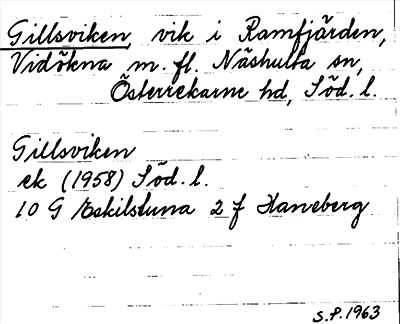 Gillsviken, vik i Ramfjärden,
Vidökna m. fl. Näshulta sn,
Österrekarne hd, Söd. l.
Gillsviken
ek (1958) Söd. l.
10 G Eskilstuna 2 f Haneberg
S.P. 1963